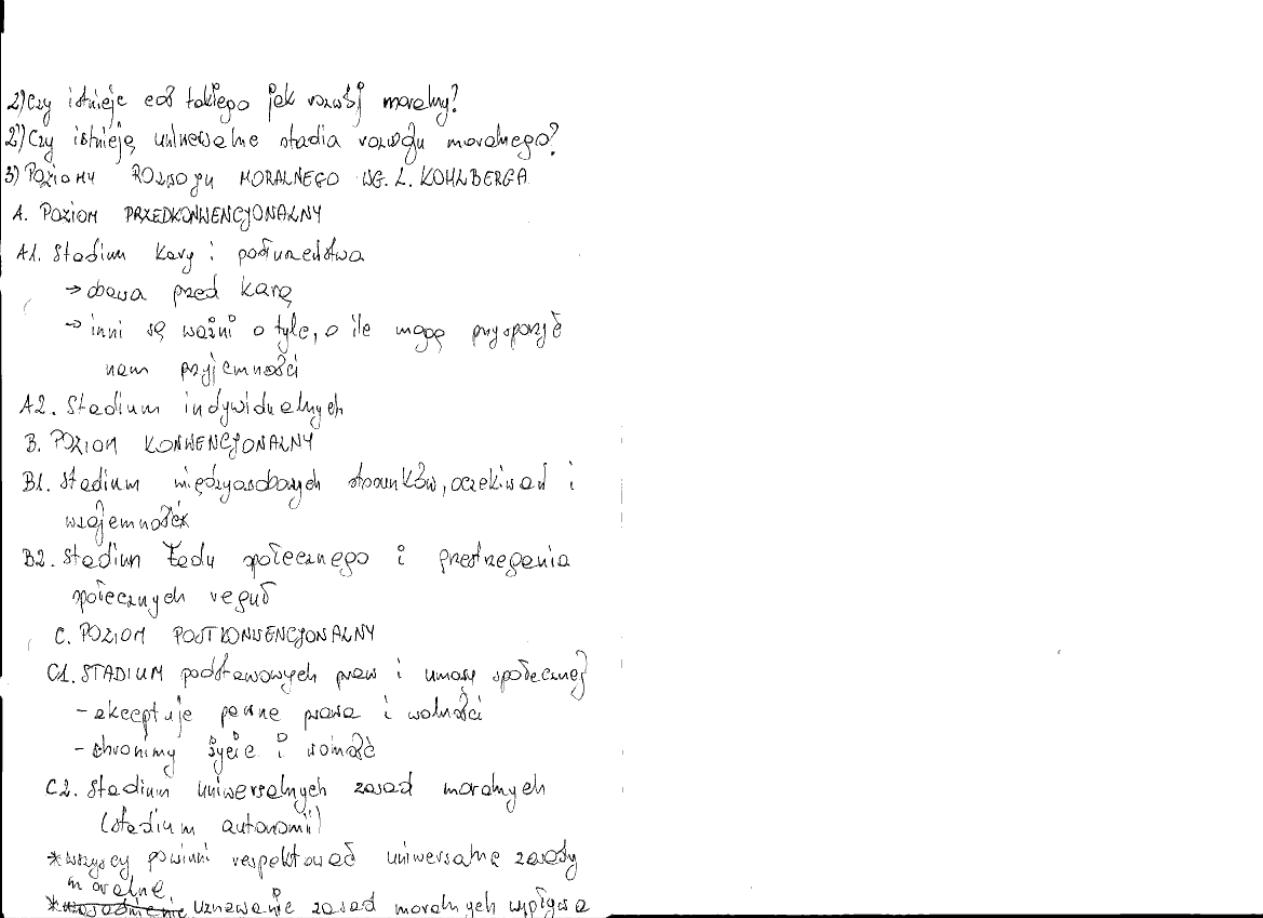 2) Czy istnieje coś takiego jak rozwój moralny?
2') Czy istnieją uniwersalne stadia rozwoju moralnego?
3) POZIOMY ROZWOJU MORALNEGO WG. L. KOHLBERGA
A. POZIOM PRZEDKONWENCJONALNY
A1. Stadium kary i posłuszeństwa
→ obawa przed karą
→ inni są ważni o tyle, o ile mogą przysporzyć
nam przyjemności
A2. Stadium indywidualnych
B. POZIOM KONWENCJONALNY
B1. Stadium międzyosobowych stosunków, oczekiwań i
wzajemności
B2. Stadium ładu społecznego i przestrzegania
społecznych reguł
C. POZIOM POSTKONWENCJONALNY
C1. STADIUM podstawowych praw i umowy społecznej
- akceptuje pewne prawa i wolności
- chronimy życie i wolność
C2. Stadium uniwersalnych zasad moralnych
(stadium autonomii)
* wszyscy powinni respektować uniwersalne zasady
moralne.
* uznawanie zasad moralnych wypływa